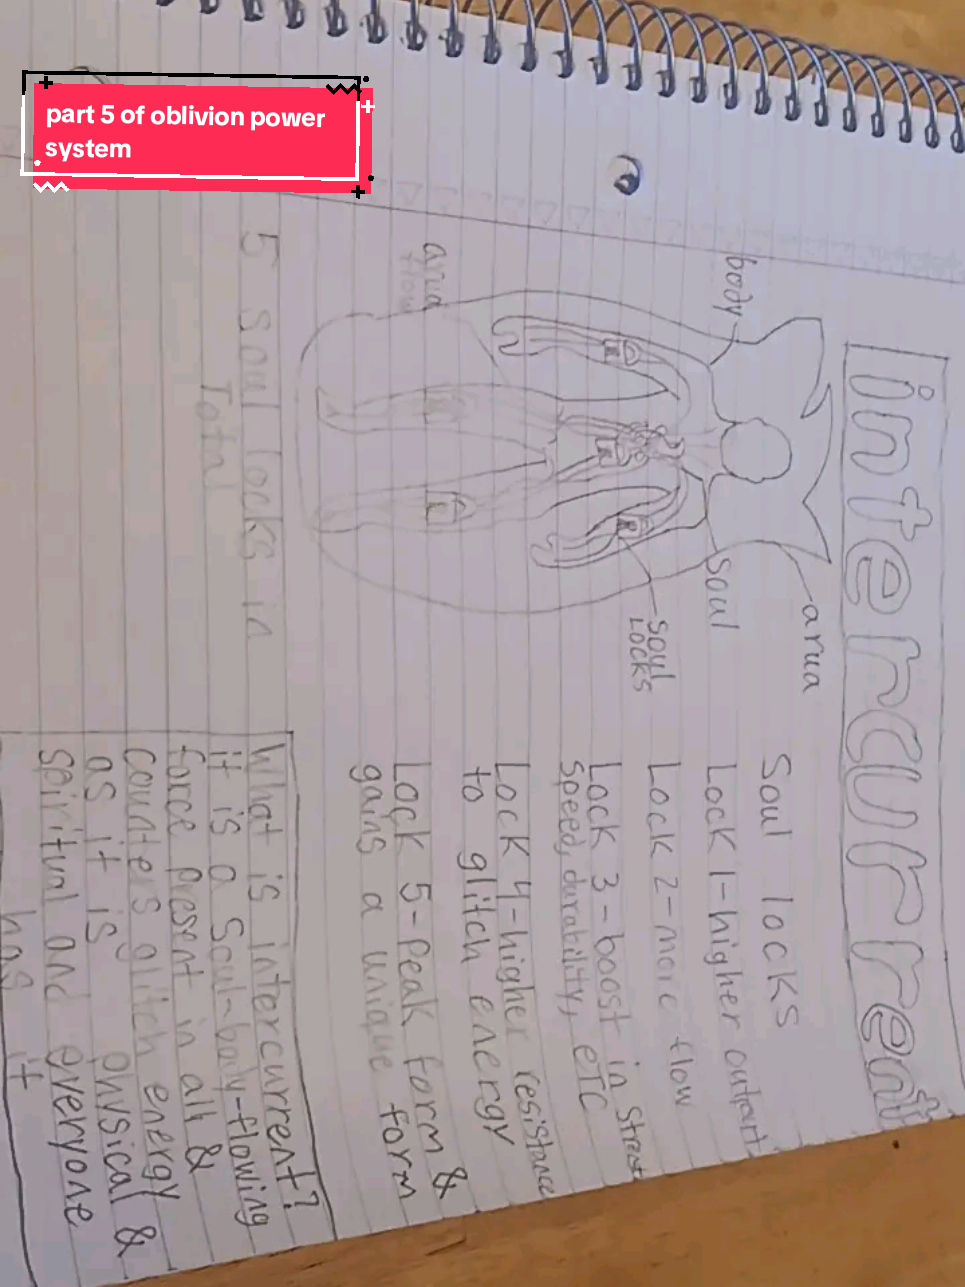 part 5 of oblivion power
system
intercurrent
arua
body
soul
soul
LOCKS
arua
flow
5 soul locks in
Total
Soul locks
Lock 1-higher output
Lock 2-more flow
Lock 3-boost in
speed, durability, ETC
Lock 4-higher resistance
to glitch energy
Lock 5-Peak form &
gains a unique form
What is intercurrent?
it is a Soul-body-flowing
force present in all &
counters glitch energy
as it is physical &
spiritual and everyone
has it